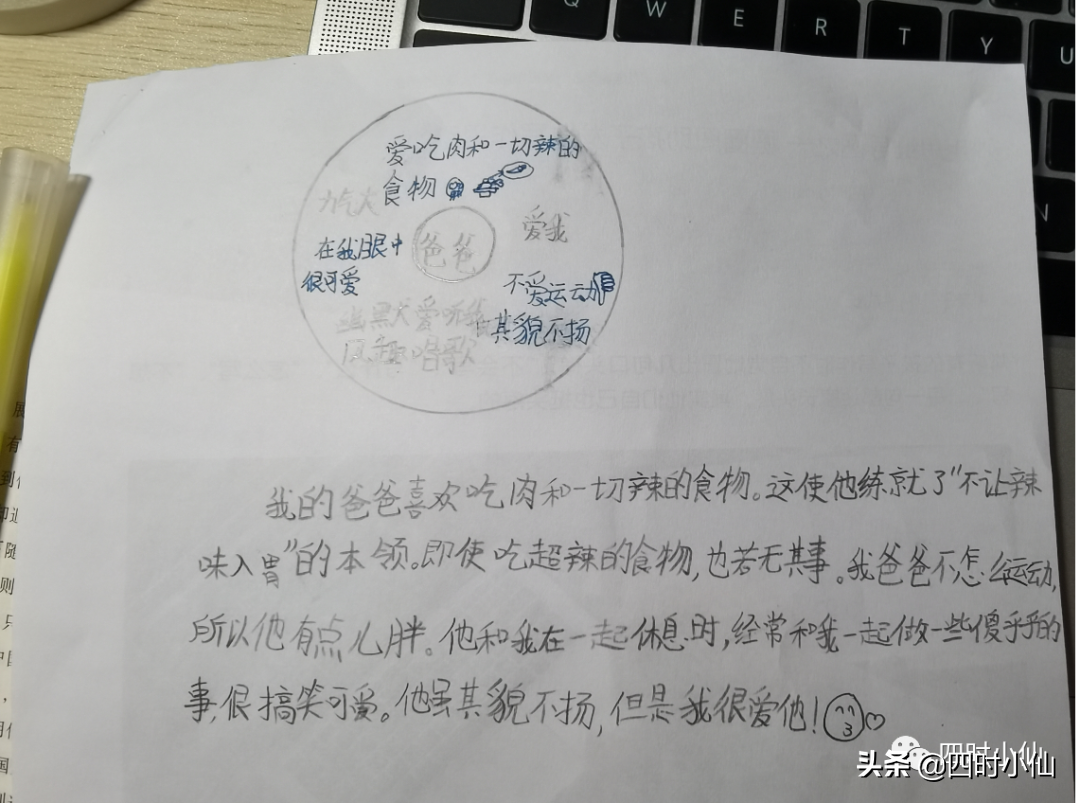 Q W E R T Y U
N
爱吃肉和一切辣的
食物
爱我
爸爸
在我眼中
很可爱
不爱运动
其貌不扬
幽默 爱听我
风趣 唱歌
我的爸爸喜欢吃肉和一切辣的食物。这使他练就了“不让辣
味入胃”的本领。即使吃超辣的食物,也若无其事。我爸爸不怎么运动,
所以他有点儿胖。他和我在一起休息时,经常和我一起做一些傻乎乎的
事,很搞笑可爱。他虽其貌不扬,但是我很爱他!
四时小仙
头条 @四时小仙